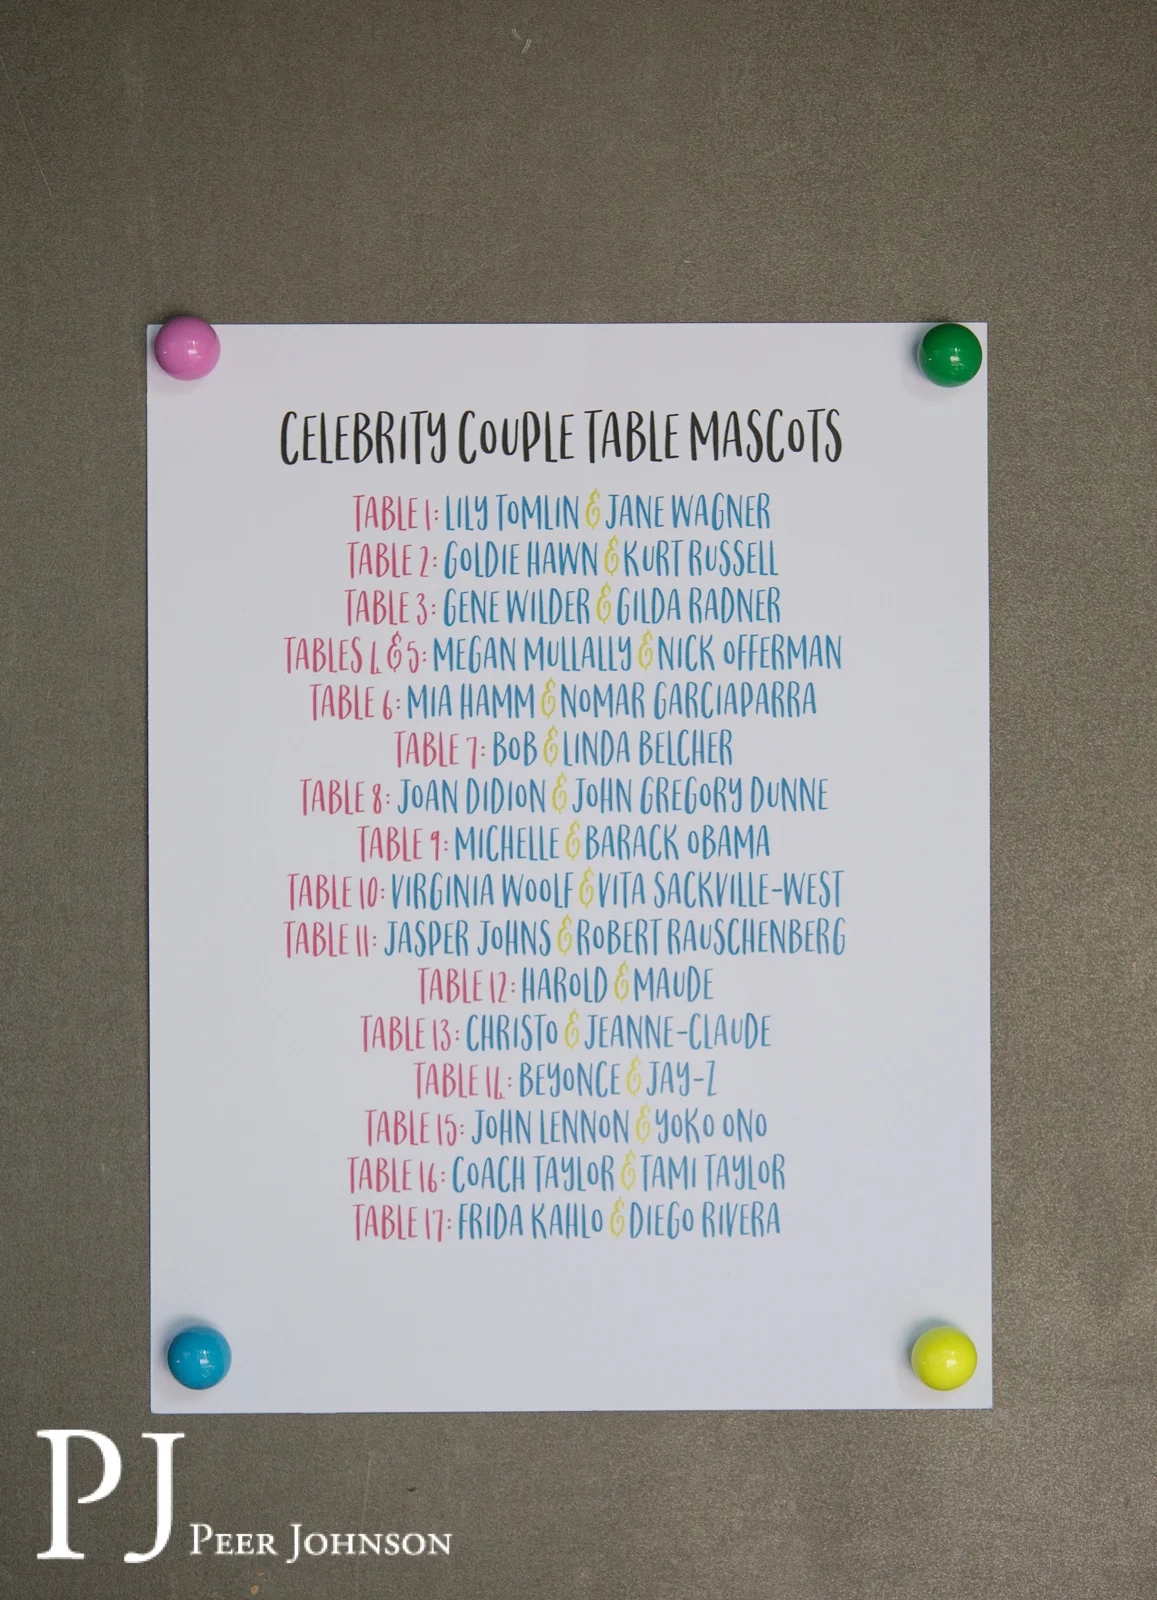 CELEBRITY COUPLE TABLE MASCOTS
TABLE 1: LILY TOMLIN & JANE WAGNER
TABLE 2: GOLDIE HAWN & KURT RUSSELL
TABLE 3: GENE WILDER & GILDA RADNER
TABLES 4 & 5: MEGAN MULLALLY & NICK OFFERMAN
TABLE 6: MIA HAMM & NOMAR GARCIAPARRA
TABLE 7: BOB & LINDA BELCHER
TABLE 8: JOAN DIDION & JOHN GREGORY DUNNE
TABLE 9: MICHELLE & BARACK OBAMA
TABLE 10: VIRGINIA WOOLF & VITA SACKVILLE-WEST
TABLE 11: JASPER JOHNS & ROBERT RAUSCHENBERG
TABLE 12: HAROLD & MAUDE
TABLE 13: CHRISTO & JEANNE-CLAUDE
TABLE 14: BEYONCE & JAY-Z
TABLE 15: JOHN LENNON & YOKO ONO
TABLE 16: COACH TAYLOR & TAMI TAYLOR
TABLE 17: FRIDA KAHLO & DIEGO RIVERA
PJ PEER JOHNSON